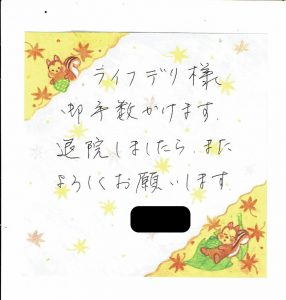 ライフデリ様
御手数かけます.
退院しましたら、また
よろしくお願いします